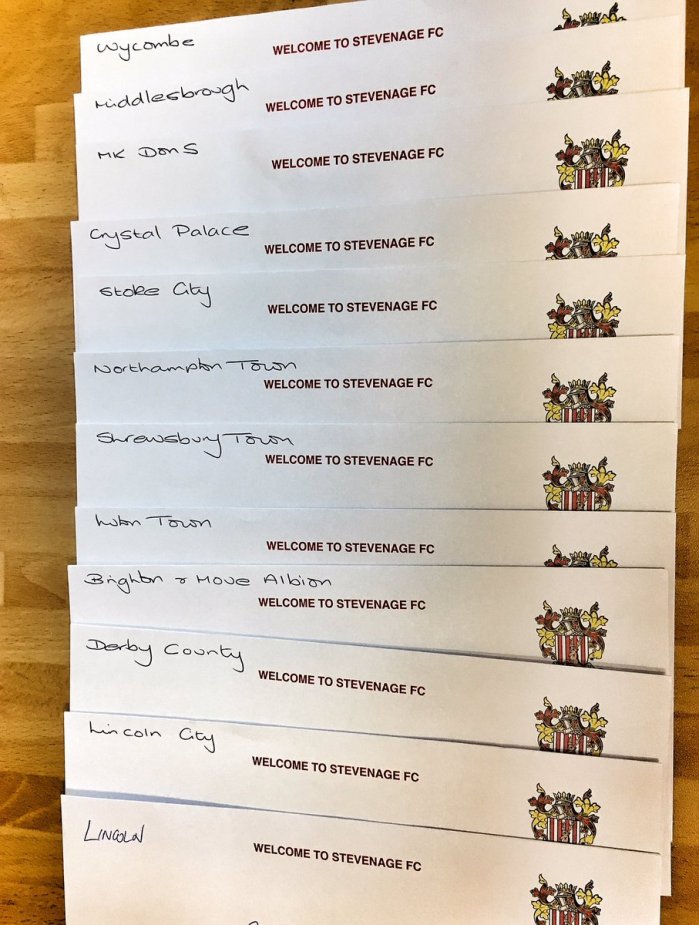 Wycombe
WELCOME TO STEVENAGE FC
Middlesbrough
WELCOME TO STEVENAGE FC
MK DonS
WELCOME TO STEVENAGE FC
Crystal Palace
WELCOME TO STEVENAGE FC
Stoke City
WELCOME TO STEVENAGE FC
Northampton Town
WELCOME TO STEVENAGE FC
Shrewsbury Town
WELCOME TO STEVENAGE FC
Luton Town
WELCOME TO STEVENAGE FC
Brighton & Hove Albion
WELCOME TO STEVENAGE FC
Derby County
WELCOME TO STEVENAGE FC
Lincoln City
WELCOME TO STEVENAGE FC
LINCOLN
WELCOME TO STEVENAGE FC